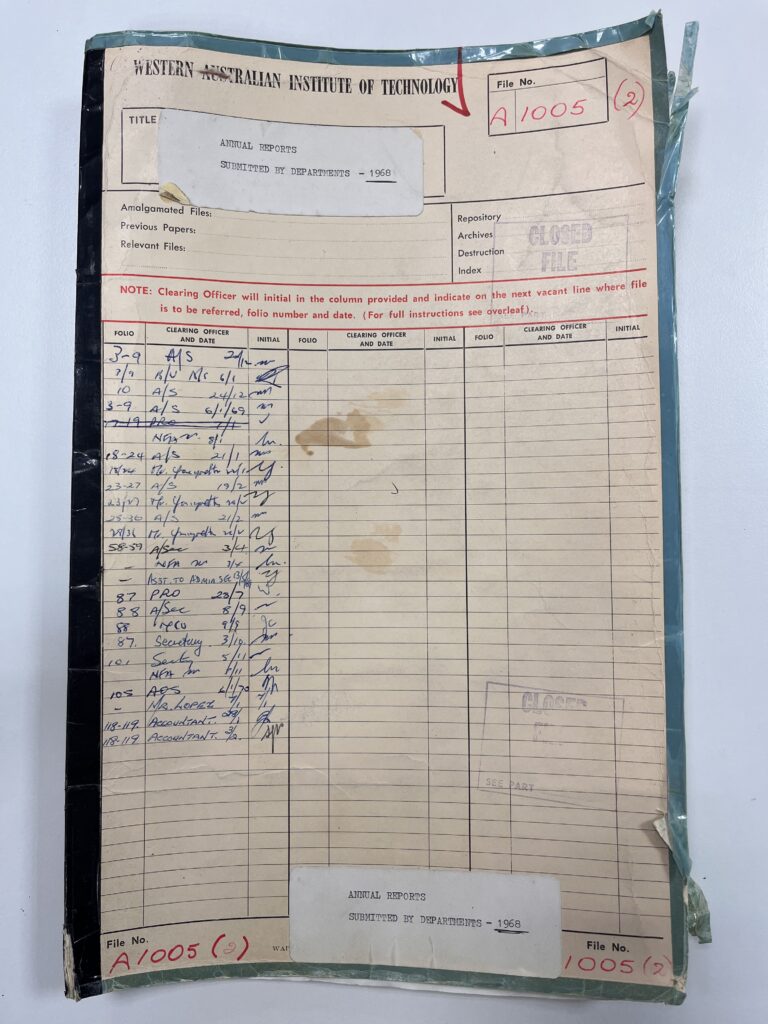 WESTERN AUSTRALIAN INSTITUTE OF TECHNOLOGY
File No.
A 1005 (2)
TITLE
ANNUAL REPORTS
SUBMITTED BY DEPARTMENTS - 1968
Amalgamated Files:
Previous Papers:
Relevant Files:
Repository
Archives
Destruction
Index
CLOSED
FILE
NOTE: Clearing Officer will initial in the column provided and indicate on the next vacant line where file
is to be referred, folio number and date. (For full instructions see overleaf).
FOLIO CLEARING OFFICER AND DATE INITIAL FOLIO CLEARING OFFICER AND DATE INITIAL FOLIO CLEARING OFFICER AND DATE INITIAL
3-9 A/S
6/1
10 A/S 24/12
3-9 A/S 6/1/69
PRO
NFA 8/1
18-24 A/S 21/1
23-27 A/S 19/2
A/S 21/2
58-59 A/Sec 3/4
- NFA
- ASST. TO ADMIN SEC
87 PRO 23/7
88 A/Sec 8/9
88 9/9
87. Secretary 3/10
101 5/11
NFA
105 AOS 6/1/70
- MR. LOPEZ
118-119. ACCOUNTANT.
118-119. ACCOUNTANT.
CLOSED
SEE PART
ANNUAL REPORTS
SUBMITTED BY DEPARTMENTS - 1968
File No.
A1005 (2)
File No.
1005 (2)